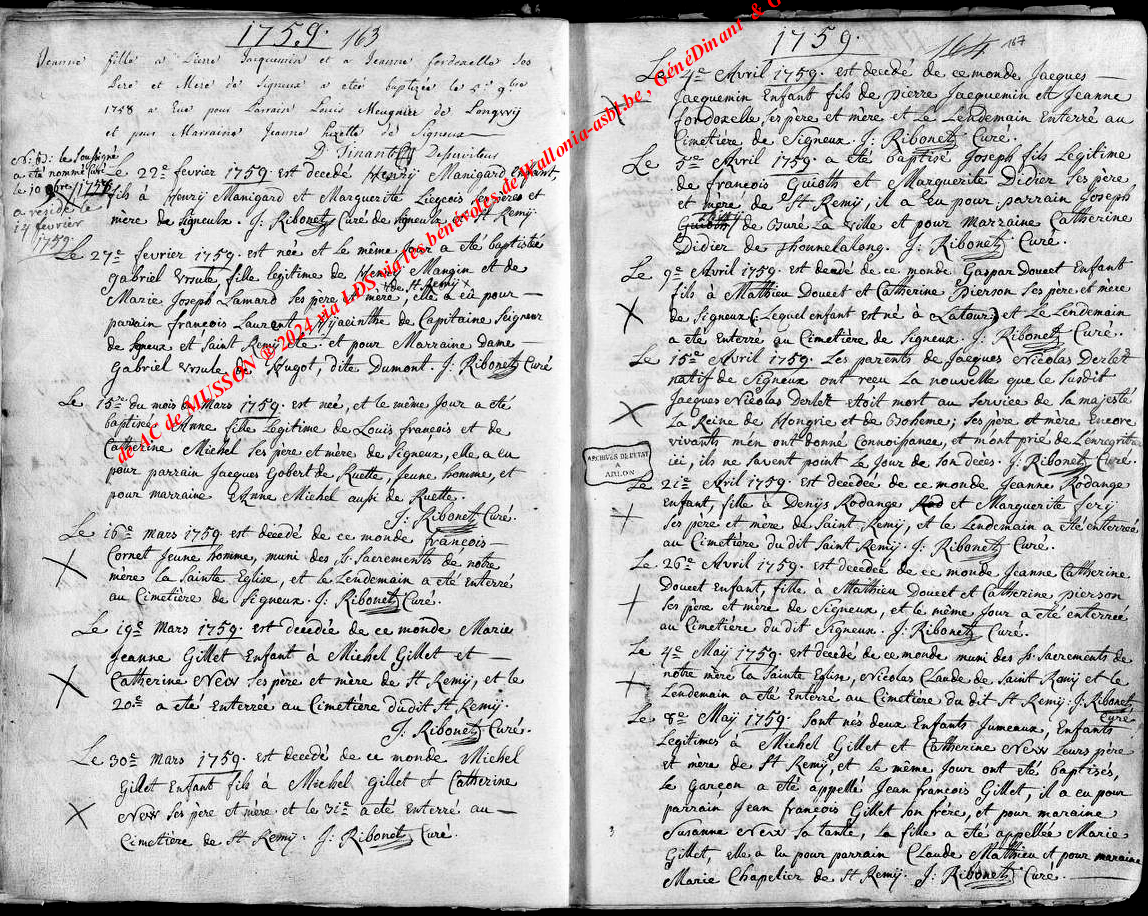 1759. 163
Jeanne fille a Pierre Jacquemin et a Jeanne Fordoxelle ses
Pere et Mere de Signeux a eté baptizée le 5e 9bre
1758 a Eue pour Parrain Louis Meugnier de Longwÿ
et pour Marraine Jeanne de Signeux
D. Tinant Desserviteur
N: B: le soussigné
a été nommé curé
le 10 1758
a rendu le
14 fevrier
1759.
Le 22e fevrier 1759 est decedé Henry Manigard Enfant,
fils à Henry Manigard et Marguerite Liegeois ses pères et
mère de signeulx. J. Ribonet Curé de signeulx et St Remy.
Le 27e fevrier 1759. est née et le même Jour a été baptisée
Gabriel Ursule, fille legitime de Henry Mangin et de
Marie Joseph Lamard ses père et mère, de St Remy x elle a eü pour
parrain françois Laurent Hyacinthe de Capitaine seigneur
de signeux et Saint Remy et pour Marraine dame
Gabriel Ursule de Hugot, dite Dumont. J: Ribonet Curé
Le 15e du mois de Mars 1759. est née, et le même Jour a eté
baptisée Anne fille legitime de Louis françois et de
Catherine Michel ses père et mère de Signeux, elle a eu
pour parrain Jacques Gobert de Ruette, Jeune homme, et
pour marraine Anne Michel aussi de Ruette.
J: Ribonet Curé.
Le 16e mars 1759 est decedé de ce monde françois
Cornet Jeune homme, muni des St Sacrements de notre
mère la Sainte Eglise, et le Lendemain a eté enterré
au Cimetière de Signeux. J: Ribonet Curé.
Le 19e Mars 1759. est decedée de ce monde Marie
Jeanne Gillet Enfant à Michel Gillet et
Catherine New ses père et mère de St Remy, et le
20e a eté Enterrée au Cimetière dudit St Remy.
J: Ribonet Curé.
Le 30e Mars 1759. est decedé de ce monde Michel
Gillet Enfant fils à Michel Gillet et Catherine
New ses père et mère et le 31e a eté enterré au
Cimetière de St Remy. J: Ribonet Curé.
1759. 164 167
Le 4e Avril 1759. est decedé de ce monde Jacques
Jacquemin Enfant fils de pierre Jacquemin et Jeanne
fordoxelle, ses père et mère et Le Lendemain Enterré au
Cimetière de Signeux. J: Ribonet Curé.
Le 5e Avril 1759. a eté baptisé Joseph fils Legitime
de francois Guioth et Marguerite Didier ses père
et mère de St Remy, il a eu pour parrain Joseph
Guioth de Buré La Ville et pour Marraine Catherine
Didier de thonnelalong. J: Ribonet Curé.
Le 9e Avril 1759. est decedé de ce monde Gaspar Doucet Enfant
fils à Mathieu Doucet et Catherine pierson ses père et mere
de Signeux (: Lequel enfant est né à Latour:) et Le Lendemain
a eté Enterré au Cimetière de Signeux. J: Ribonet Curé.
Le 15e Avril 1759. Les parents de Jacques Nicolas Derlet
natif de Signeux ont receu La nouvelle que le susdit
Jacques Nicolas Derlet étoit mort au service de sa majesté
La Reine de Hongrie et de Boheme; ses père et mère Encore
vivants m'en ont donné Connoissance, et m'ont prié de L'enregistrer
ici, ils ne savent point Le Jour de son décès. J: Ribonet Curé.
ARCHIVES DE L'ETAT
A
ARLON
Le 21e Avril 1759. est decedée de ce monde Jeanne Rodange
Enfant, fille à Denÿs Rodange et Marguerite ferÿ
ses père et mère de Saint Remy, et Le Lendemain a eté enterrée
au Cimetière dudit Saint Remy. J: Ribonet Curé.
Le 26e Avril 1759. est decedée de ce monde Jeanne Catherine
Doucet Enfant, fille à Mathieu Doucet et Catherine pierson
ses père et mère de Signeux, et le même Jour a eté enterrée
au Cimetière dudit Signeux. J: Ribonet Curé.
Le 4e Maÿ 1759. est decedé de ce monde muni des St Sacrements de
notre mère la Sainte Eglise, Nicolas Claude de Saint Remy et le
Lendemain a eté Enterré au Cimetière du dit St Remy. J: Ribonet
Curé
Le 8e Maÿ 1759. sont nés deux Enfants Jumeaux, Enfants
Legitimes à Michel Gillet et Catherine New Leurs père
et mère de St Remy, et Le même Jour ont eté baptisés,
Le Garçon a eté appellé Jean francois Gillet, il a eu pour
parrain Jean francois Gillet son frère, et pour maraine
Susanne New sa tante, La fille a eté appellée Marie
Gillet, elle a Eu pour parrain Claude Mathieu et pour maraine
Marie Chapelier de St Remy. J: Ribonet Curé.
de AC de MUSSON ® 2024 via LDS via les bénévoles de Wallonia-asbl.be , GénéDinant & G